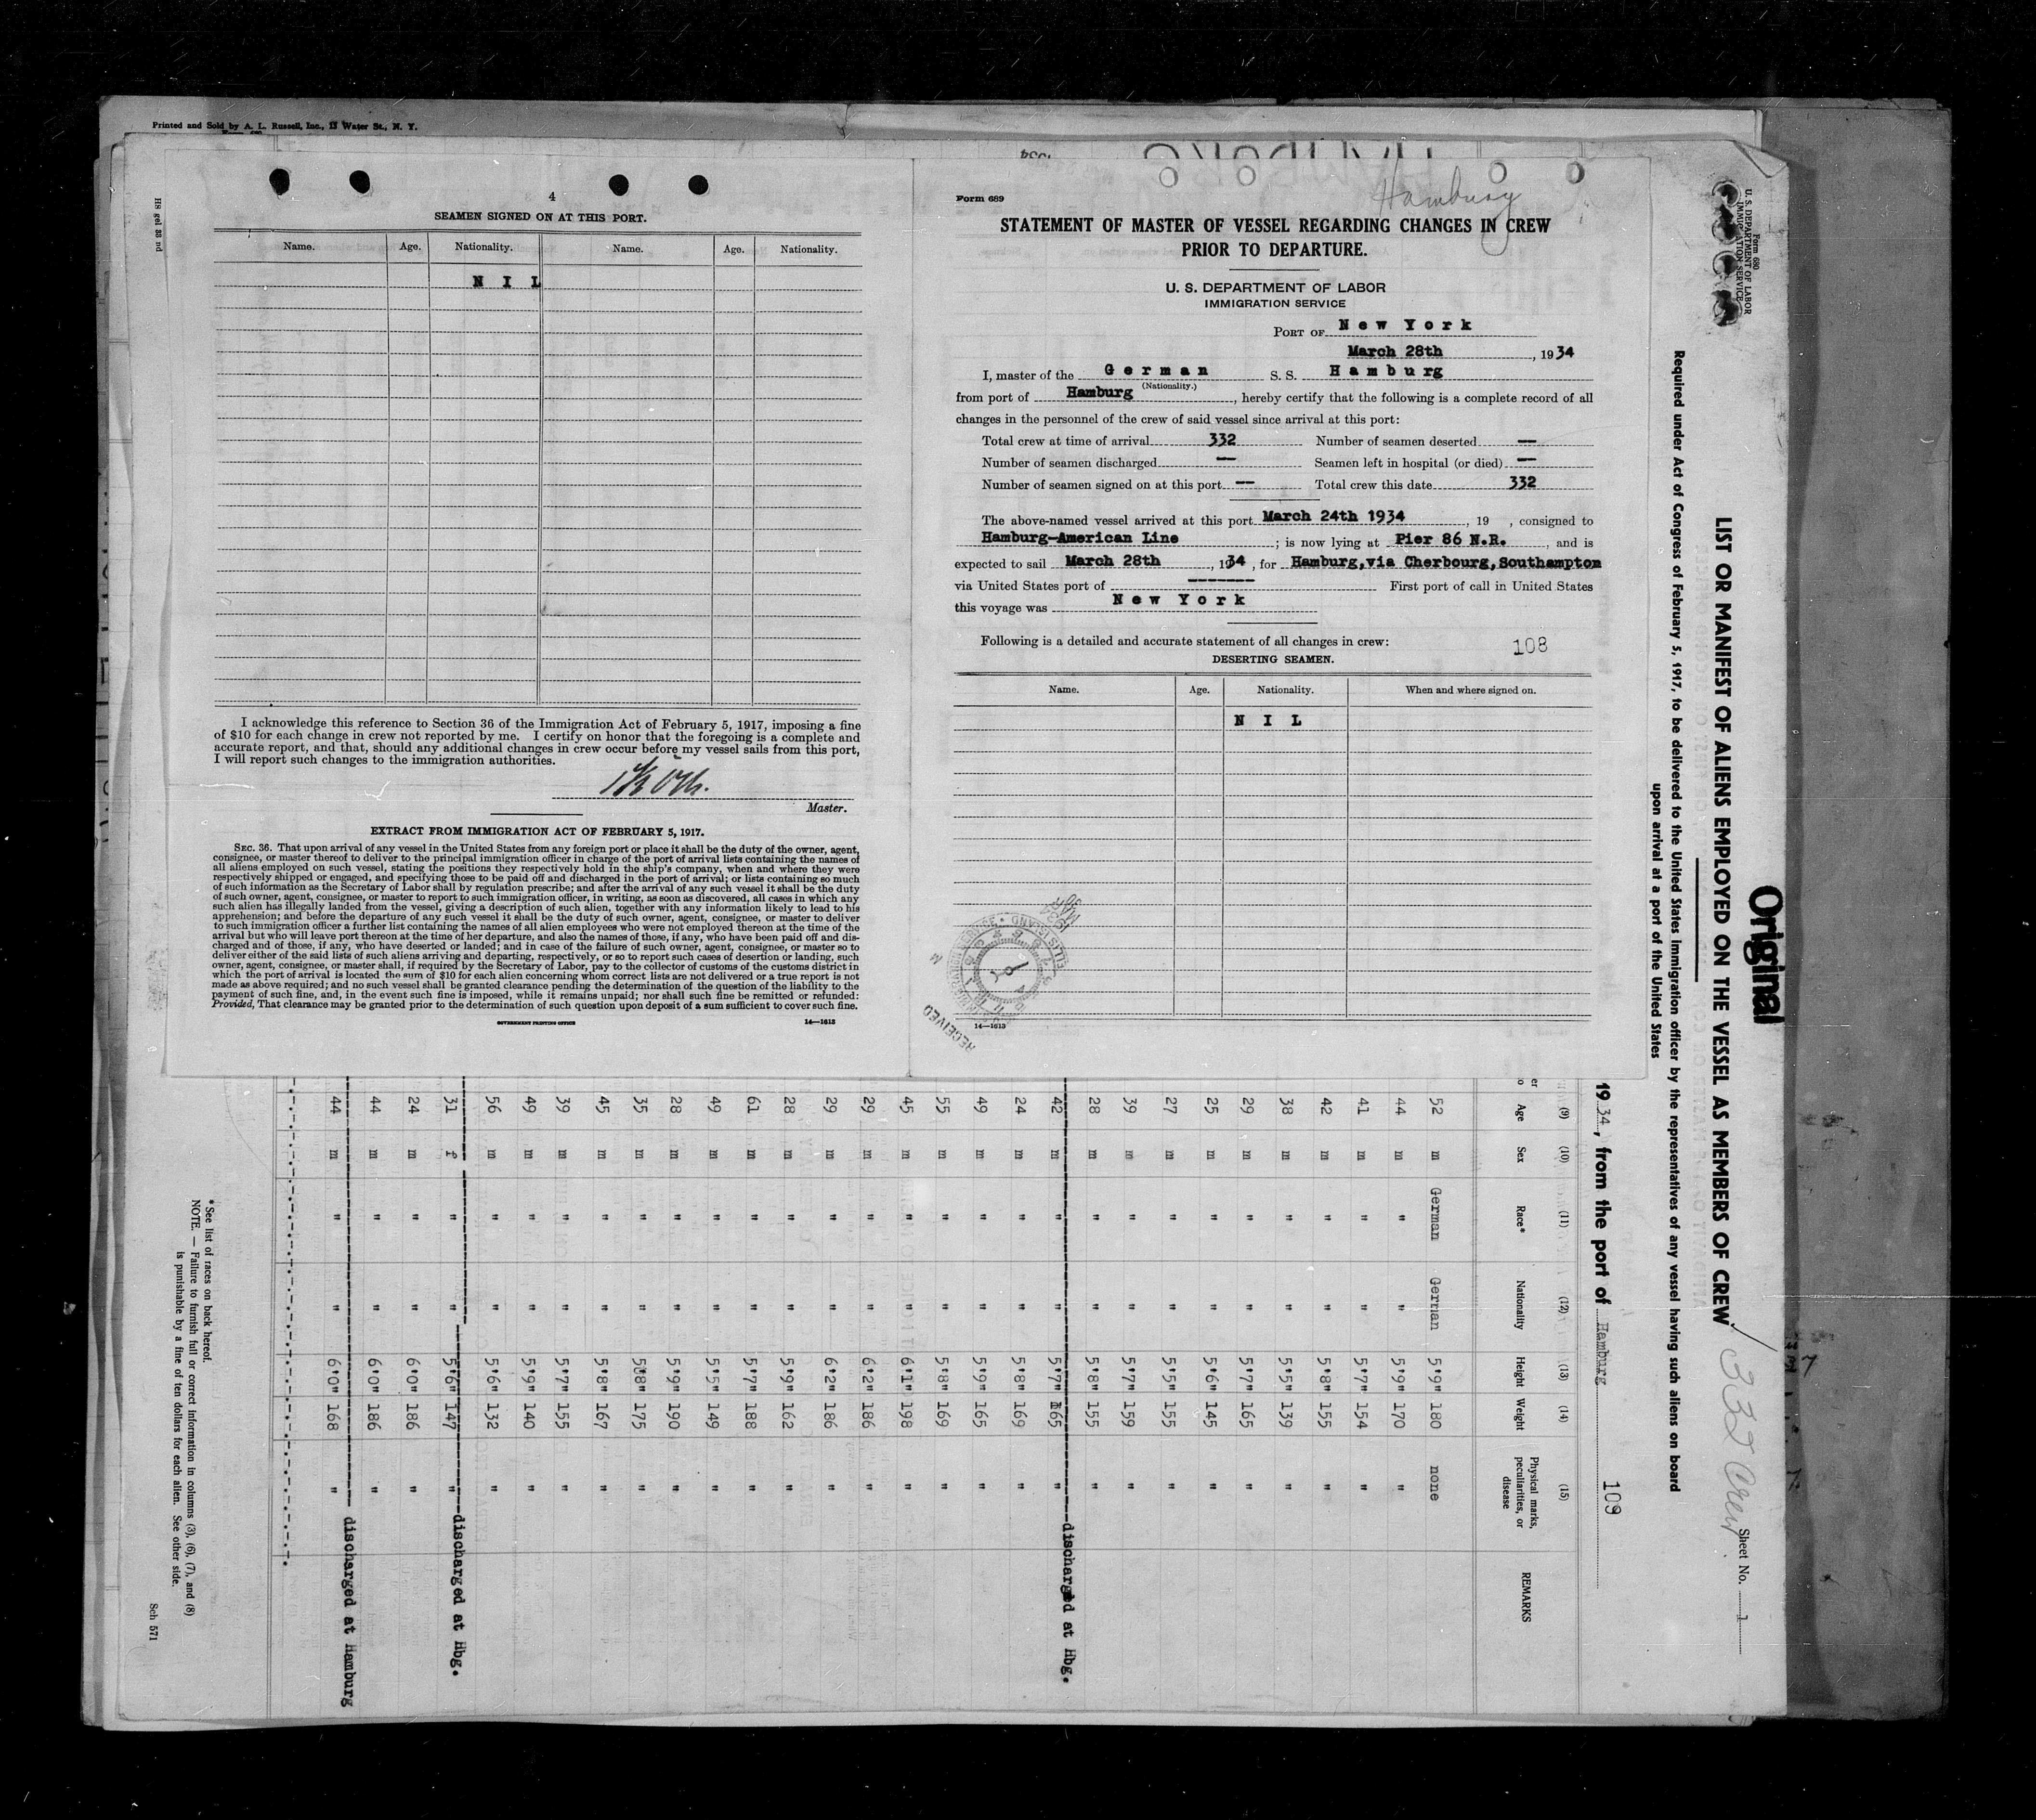 Printed and Sold by A. L. Russell, Inc., 13 Water St., N. Y.
HS gel 33 nd
4
SEAMEN SIGNED ON AT THIS PORT.
Name. Age. Nationality. Name. Age. Nationality.
N I L
I acknowledge this reference to Section 36 of the Immigration Act of February 5, 1917, imposing a fine
of $10 for each change in crew not reported by me. I certify on honor that the foregoing is a complete and
accurate report, and that, should any additional changes in crew occur before my vessel sails from this port,
I will report such changes to the immigration authorities.
Master.
EXTRACT FROM IMMIGRATION ACT OF FEBRUARY 5, 1917.
SEC. 36. That upon arrival of any vessel in the United States from any foreign port or place it shall be the duty of the owner, agent,
consignee, or master thereof to deliver to the principal immigration officer in charge of the port of arrival lists containing the names of
all aliens employed on such vessel, stating the positions they respectively hold in the ship's company, when and where they were
respectively shipped or engaged, and specifying those to be paid off and discharged in the port of arrival; or lists containing so much
of such information as the Secretary of Labor shall by regulation prescribe; and after the arrival of any such vessel it shall be the duty
of such owner, agent, consignee, or master to report to such immigration officer, in writing, as soon as discovered, all cases in which any
such alien has illegally landed from the vessel, giving a description of such alien, together with any information likely to lead to his
apprehension; and before the departure of any such vessel it shall be the duty of such owner, agent, consignee, or master to deliver
to such immigration officer a further list containing the names of all alien employees who were not employed thereon at the time of the
arrival but who will leave port thereon at the time of her departure, and also the names of those, if any, who have been paid off and dis-
charged and of those, if any, who have deserted or landed; and in case of the failure of such owner, agent, consignee, or master so to
deliver either of the said lists of such aliens arriving and departing, respectively, or so to report such cases of desertion or landing, such
owner, agent, consignee, or master shall, if required by the Secretary of Labor, pay to the collector of customs of the customs district in
which the port of arrival is located the sum of $10 for each alien concerning whom correct lists are not delivered or a true report is not
made as above required; and no such vessel shall be granted clearance pending the determination of the question of the liability to the
payment of such fine, and, in the event such fine is imposed, while it remains unpaid; nor shall such fine be remitted or refunded:
Provided, That clearance may be granted prior to the determination of such question upon deposit of a sum sufficient to cover such fine.
GOVERNMENT PRINTING OFFICE 14—1613
Hamburg
Form 689
STATEMENT OF MASTER OF VESSEL REGARDING CHANGES IN CREW
PRIOR TO DEPARTURE.
U. S. DEPARTMENT OF LABOR
IMMIGRATION SERVICE
PORT OF New York
March 28th, 1934
I, master of the German S. S. Hamburg
(Nationality.)
from port of Hamburg, hereby certify that the following is a complete record of all
changes in the personnel of the crew of said vessel since arrival at this port:
Total crew at time of arrival 332 Number of seamen deserted —
Number of seamen discharged — Seamen left in hospital (or died) —
Number of seamen signed on at this port — Total crew this date 332
The above-named vessel arrived at this port March 24th 1934, 19 , consigned to
Hamburg-American Line; is now lying at Pier 86 N.R., and is
expected to sail March 28th, 1934, for Hamburg,via Cherbourg,Southampton
via United States port of ------- First port of call in United States
this voyage was New York
Following is a detailed and accurate statement of all changes in crew: 108
DESERTING SEAMEN.
Name. Age. Nationality. When and where signed on.
N I L
RECEIVED
ELLIS ISLAND
14—1613
Form 680
U. S. DEPARTMENT OF LABOR
IMMIGRATION SERVICE
Original
LIST OR MANIFEST OF ALIENS EMPLOYED ON THE VESSEL AS MEMBERS OF CREW
332 Crew
Sheet No. 1
Required under Act of Congress of February 5, 1917, to be delivered to the United States immigration officer by the representatives of any vessel having such aliens on board
upon arrival at a port of the United States
1934, from the port of Hamburg 109
(9) (10) (11) (12) (13) (14) (15)
Age Sex Race* Nationality Height Weight Physical marks, peculiarities, or disease REMARKS
52 m German German 5'9" 180 none
44 m " " 5'9" 170 "
41 m " " 5'7" 154 "
42 m " " 5'8" 155 "
38 m " " 5'5" 139 "
29 m " " 5'7" 165 "
25 m " " 5'6" 145 "
27 m " " 5'5" 155 "
39 m " " 5'7" 159 "
28 m " " 5'8" 155 "
42 m " " 5'7" 165 " discharged at Hbg.
24 m " " 5'8" 169 "
49 m " " 5'9" 165 "
55 m " " 5'8" 169 "
45 m " " 6'1" 198 "
29 m " " 6'2" 186 "
29 m " " 6'2" 186 "
28 m " " 5'9" 162 "
61 m " " 5'7" 188 "
49 m " " 5'5" 149 "
28 m " " 5'9" 190 "
35 m " " 5'8" 175 "
45 m " " 5'8" 167 "
39 m " " 5'7" 155 "
49 m " " 5'9" 140 "
56 m " " 5'6" 132 "
31 f " " 5'6" 147 " discharged at Hbg.
24 m " " 6'0" 186 "
44 m " " 6'0" 186 "
44 m " " 6'0" 168 " discharged at Hamburg
* See list of races on back hereof.
NOTE. — Failure to furnish full or correct information in columns (3), (6), (7), and (8)
is punishable by a fine of ten dollars for each alien. See other side.
Sch 571